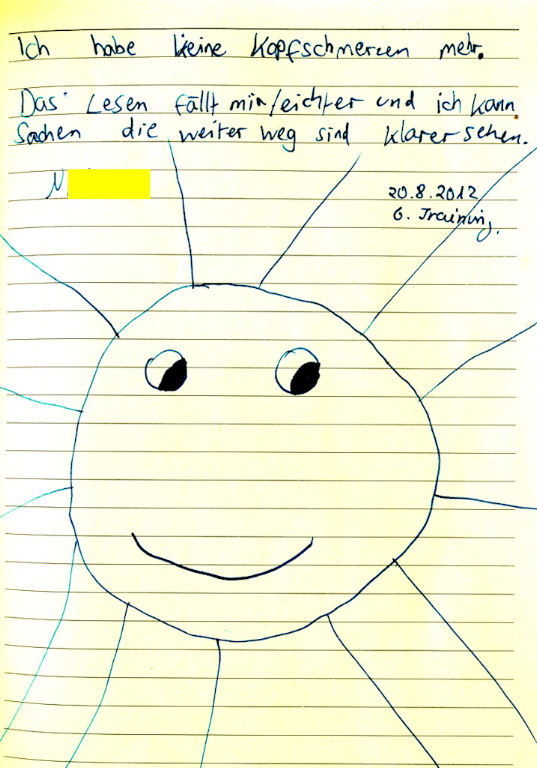 Ich habe keine Kopfschmerzen mehr.
Das Lesen fällt mir leichter und ich kann
Sachen die weiter weg sind klarer sehen.
N
20.8.2012
6. Training.